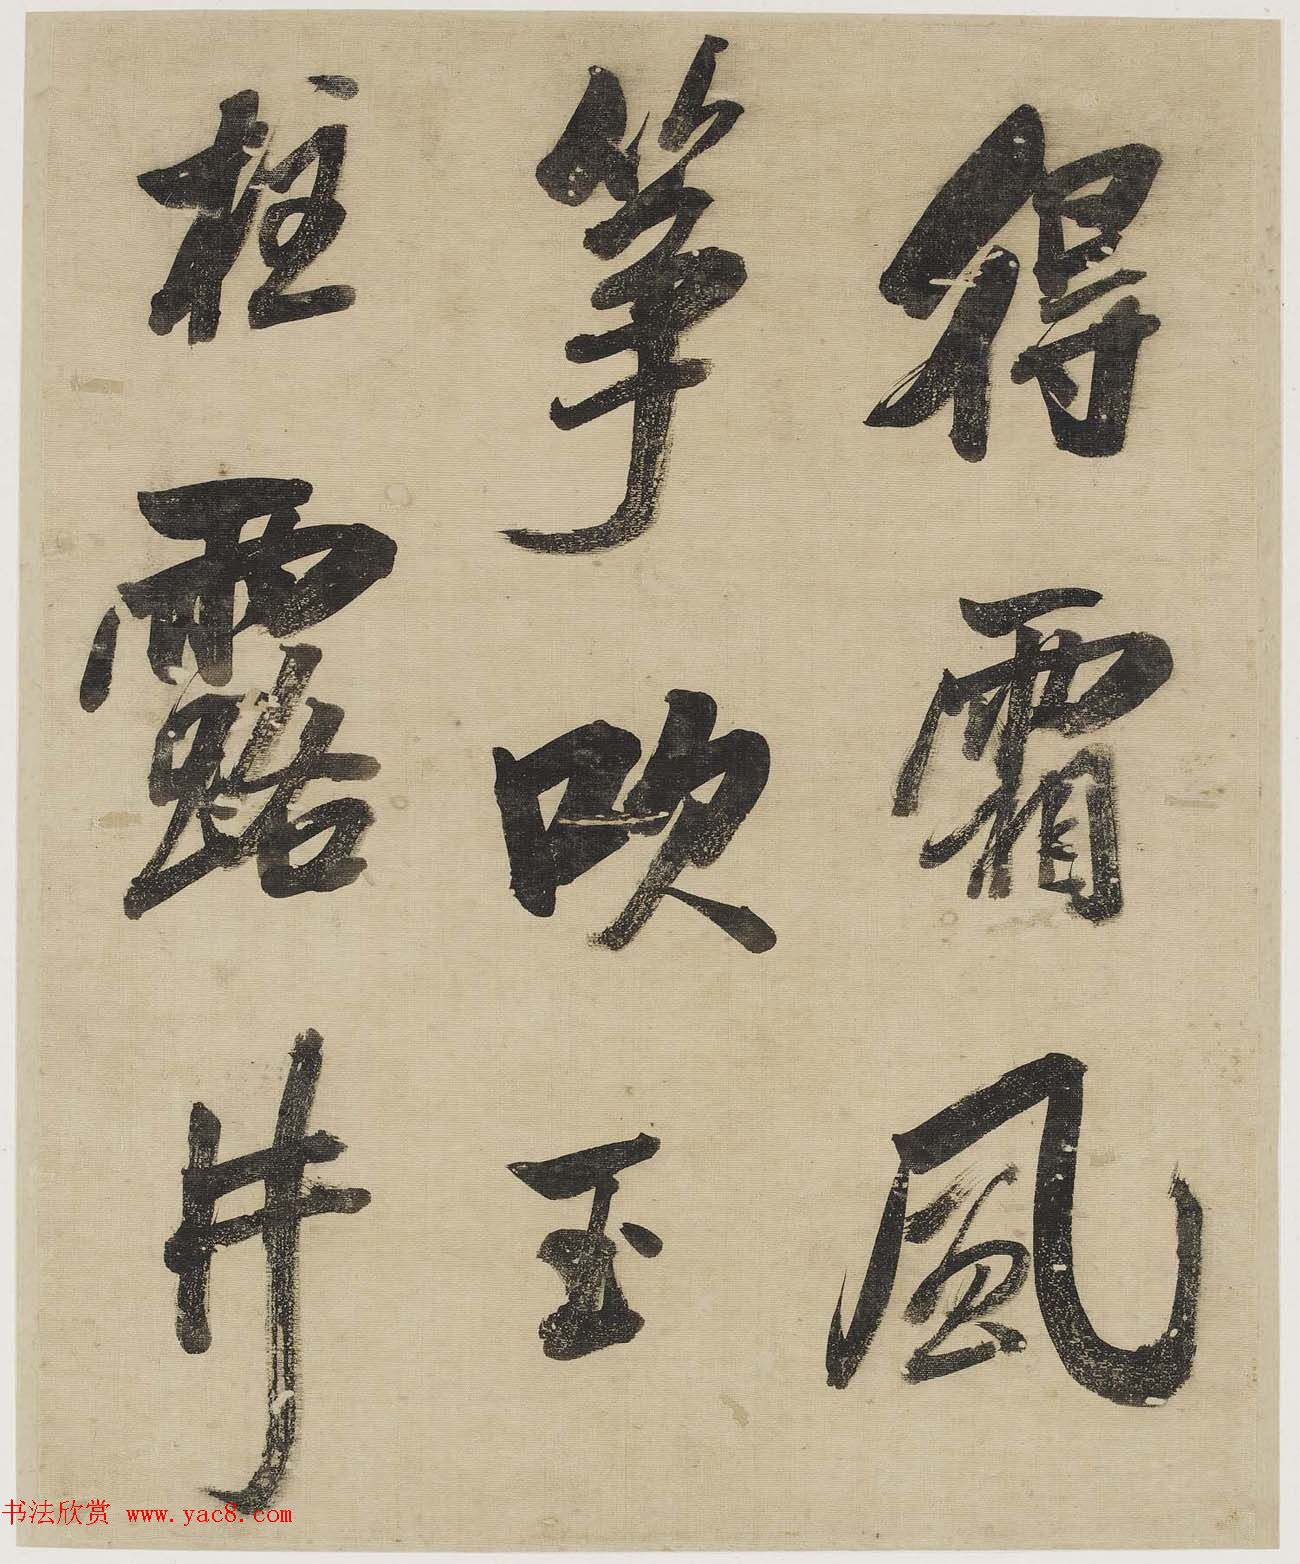 得霜風
筝吹玉
柱露井
书法欣赏 www.yac8.com